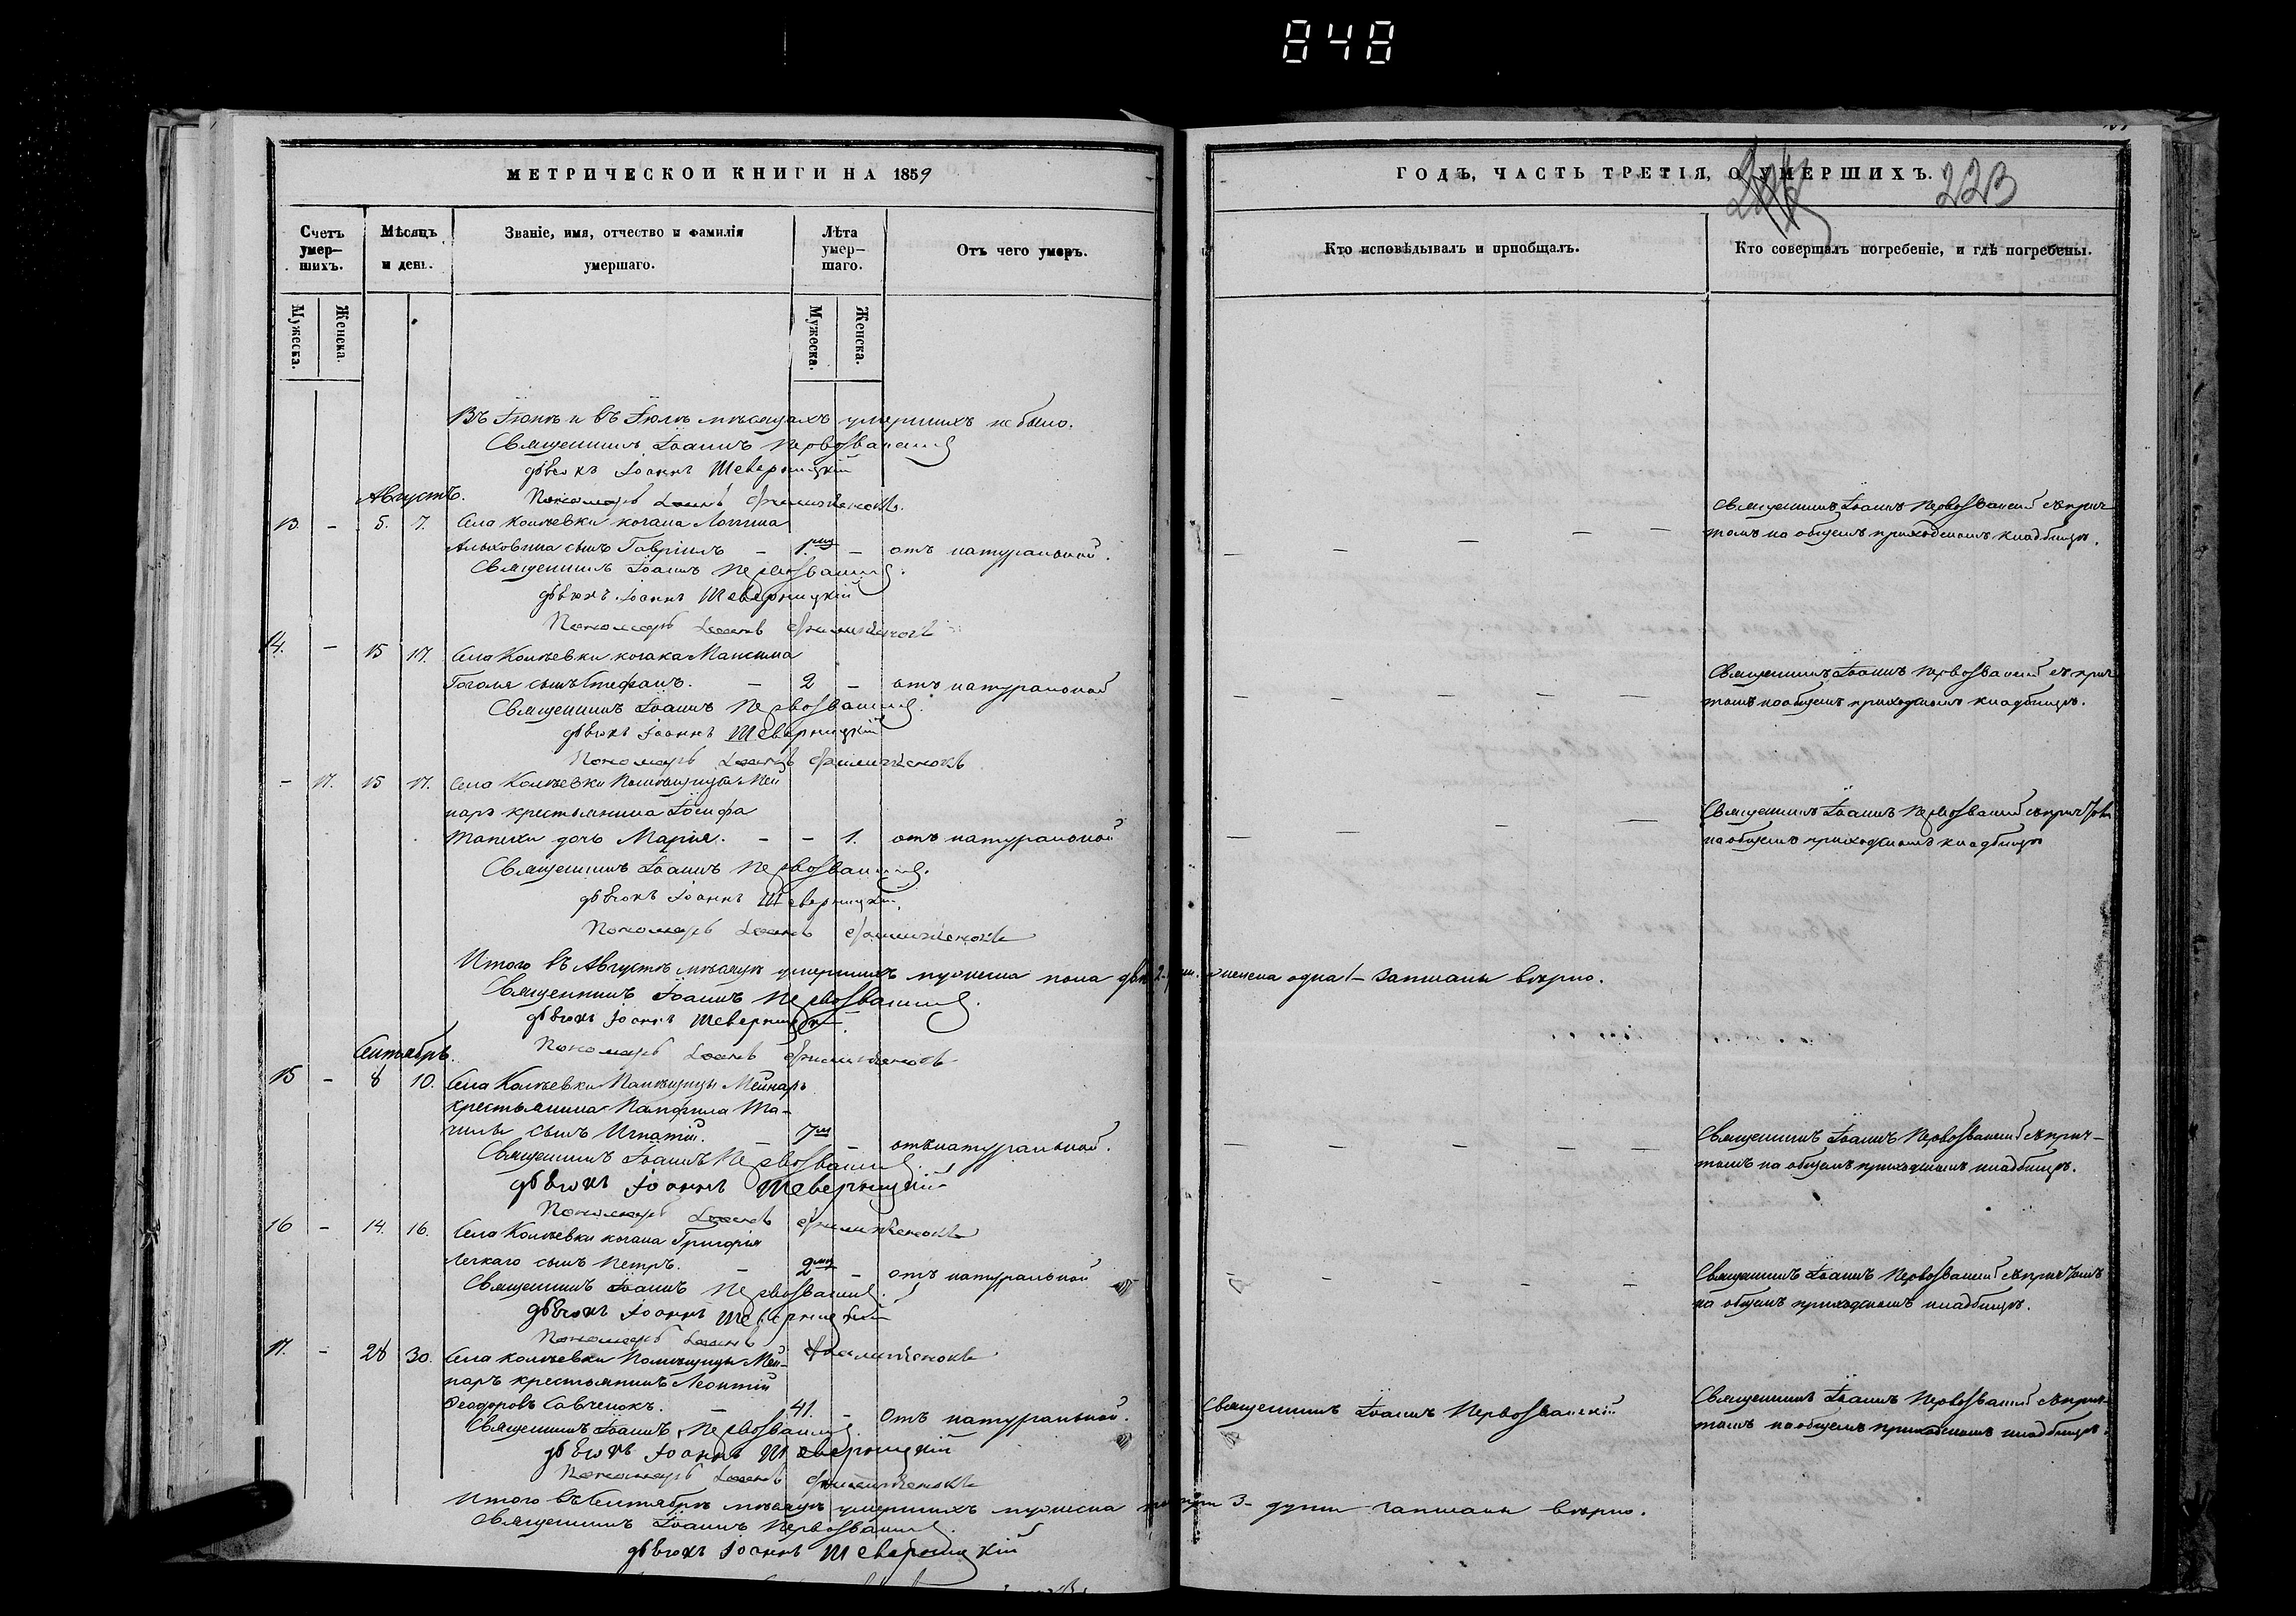 848
МЕТРИЧЕСКОЙ КНИГИ НА 1859
Счетъ умер-
шихъ.
Мужеска.
Женска.
Мѣсяцъ
и день.
Званіе, имя, отчество и фамилія
умершаго.
Лѣта
умер-
шаго.
Мужеска.
Женска.
Отъ чего умеръ.
Въ Іюнѣ и въ Іюлѣ мѣсяцахъ умершихъ не было.
Священникъ Іоаннъ Первозванскій
дьячокъ Іоаннъ Шеверницкій
Пономарь Іоаннъ
Августъ.
13 – 5. 7. Села козака
сынъ Гавріилъ – 1. – отъ натуральной.
Священникъ Іоаннъ Первозванскій.
дьячокъ Іоаннъ Шеверницкій
Пономарь Іоаннъ
14. – 15 17. Села козака Максима
Гоголя сынъ Стефанъ. – 2 – отъ натуральной
Священникъ Іоаннъ Первозванскій.
дьячокъ Іоаннъ Шеверницкій
Пономарь Іоаннъ
– 17. 15 17. Села Помѣщицы Мей
наръ крестьянина Іосифа
дочь Марія. – – 1. отъ натуральной
Священникъ Іоаннъ Первозванскій.
дьячокъ Іоаннъ Шеверницкій.
Пономарь Іоаннъ
Итого въ Августѣ мѣсяцѣ умершихъ мужеска пола двѣ 2. женска одна 1 – записаны вѣрно.
Священникъ Іоаннъ Первозванскій.
дьячокъ Іоаннъ Шеверницкій.
Пономарь Іоаннъ
Сентябрь.
15 – 8 10. Села Помѣщицы Мейнаръ
крестьянина Панфила
сынъ Игнатій. – 7 – отъ натуральной.
Священникъ Іоаннъ Первозванскій
дьячокъ Іоаннъ Шеверницкій
Пономарь Іоаннъ
16 – 14. 16. Села козака Григорія
Легкаго сынъ Петръ. – 2 – отъ натуральной
Священникъ Іоаннъ Первозванскій.
дьячокъ Іоаннъ Шеверницкій
Пономарь Іоаннъ
17. – 28 30. Села Помѣщицы Мей-
наръ крестьянинъ Леонтій
Феодоровъ Савченокъ. – 41. – Отъ натуральной.
Священникъ Іоаннъ Первозванскій.
дьячокъ Іоаннъ Шеверницкій
Пономарь Іоаннъ
Итого въ Сентябрѣ мѣсяцѣ умершихъ мужеска три 3 – души записаны вѣрно.
Священникъ Іоаннъ Первозванскій.
дьячокъ Іоаннъ Шеверницкій
ГОДЪ, ЧАСТЬ ТРЕТІЯ, О УМЕРШИХЪ. 223
Кто исповѣдывалъ и пріобщалъ.
Кто совершалъ погребеніе, и гдѣ погребены.
Священникъ Іоаннъ Первозванскій съ прич-
томъ на общемъ приходскомъ кладбищѣ.
Священникъ Іоаннъ Первозванскій съ прич
томъ на общемъ приходскомъ кладбищѣ.
Священникъ Іоаннъ Первозванскій съ причтомъ
на общемъ приходскомъ кладбищѣ
Священникъ Іоаннъ Первозванскій съ прич-
томъ на общемъ приходскомъ кладбищѣ.
Священникъ Іоаннъ Первозванскій съ причтомъ
на общемъ приходскомъ кладбищѣ.
Священникъ Іоаннъ Первозванскій
Священникъ Іоаннъ Первозванскій съ прич-
томъ на общемъ приходскомъ кладбищѣ.